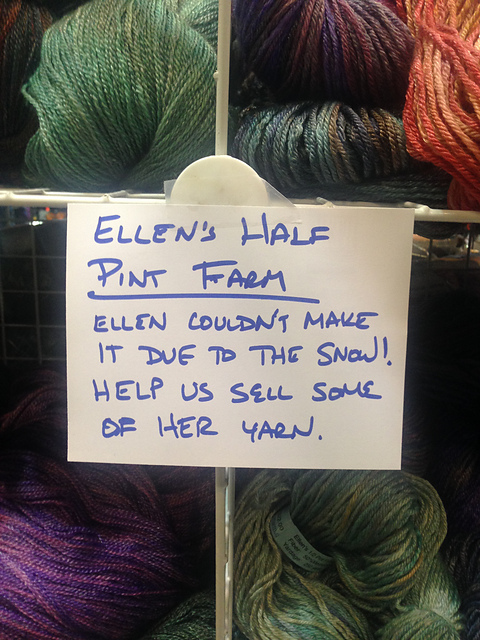 ELLEN'S HALF
PINT FARM
ELLEN COULDN'T MAKE
IT DUE TO THE SNOW!
HELP US SELL SOME
OF HER YARN.